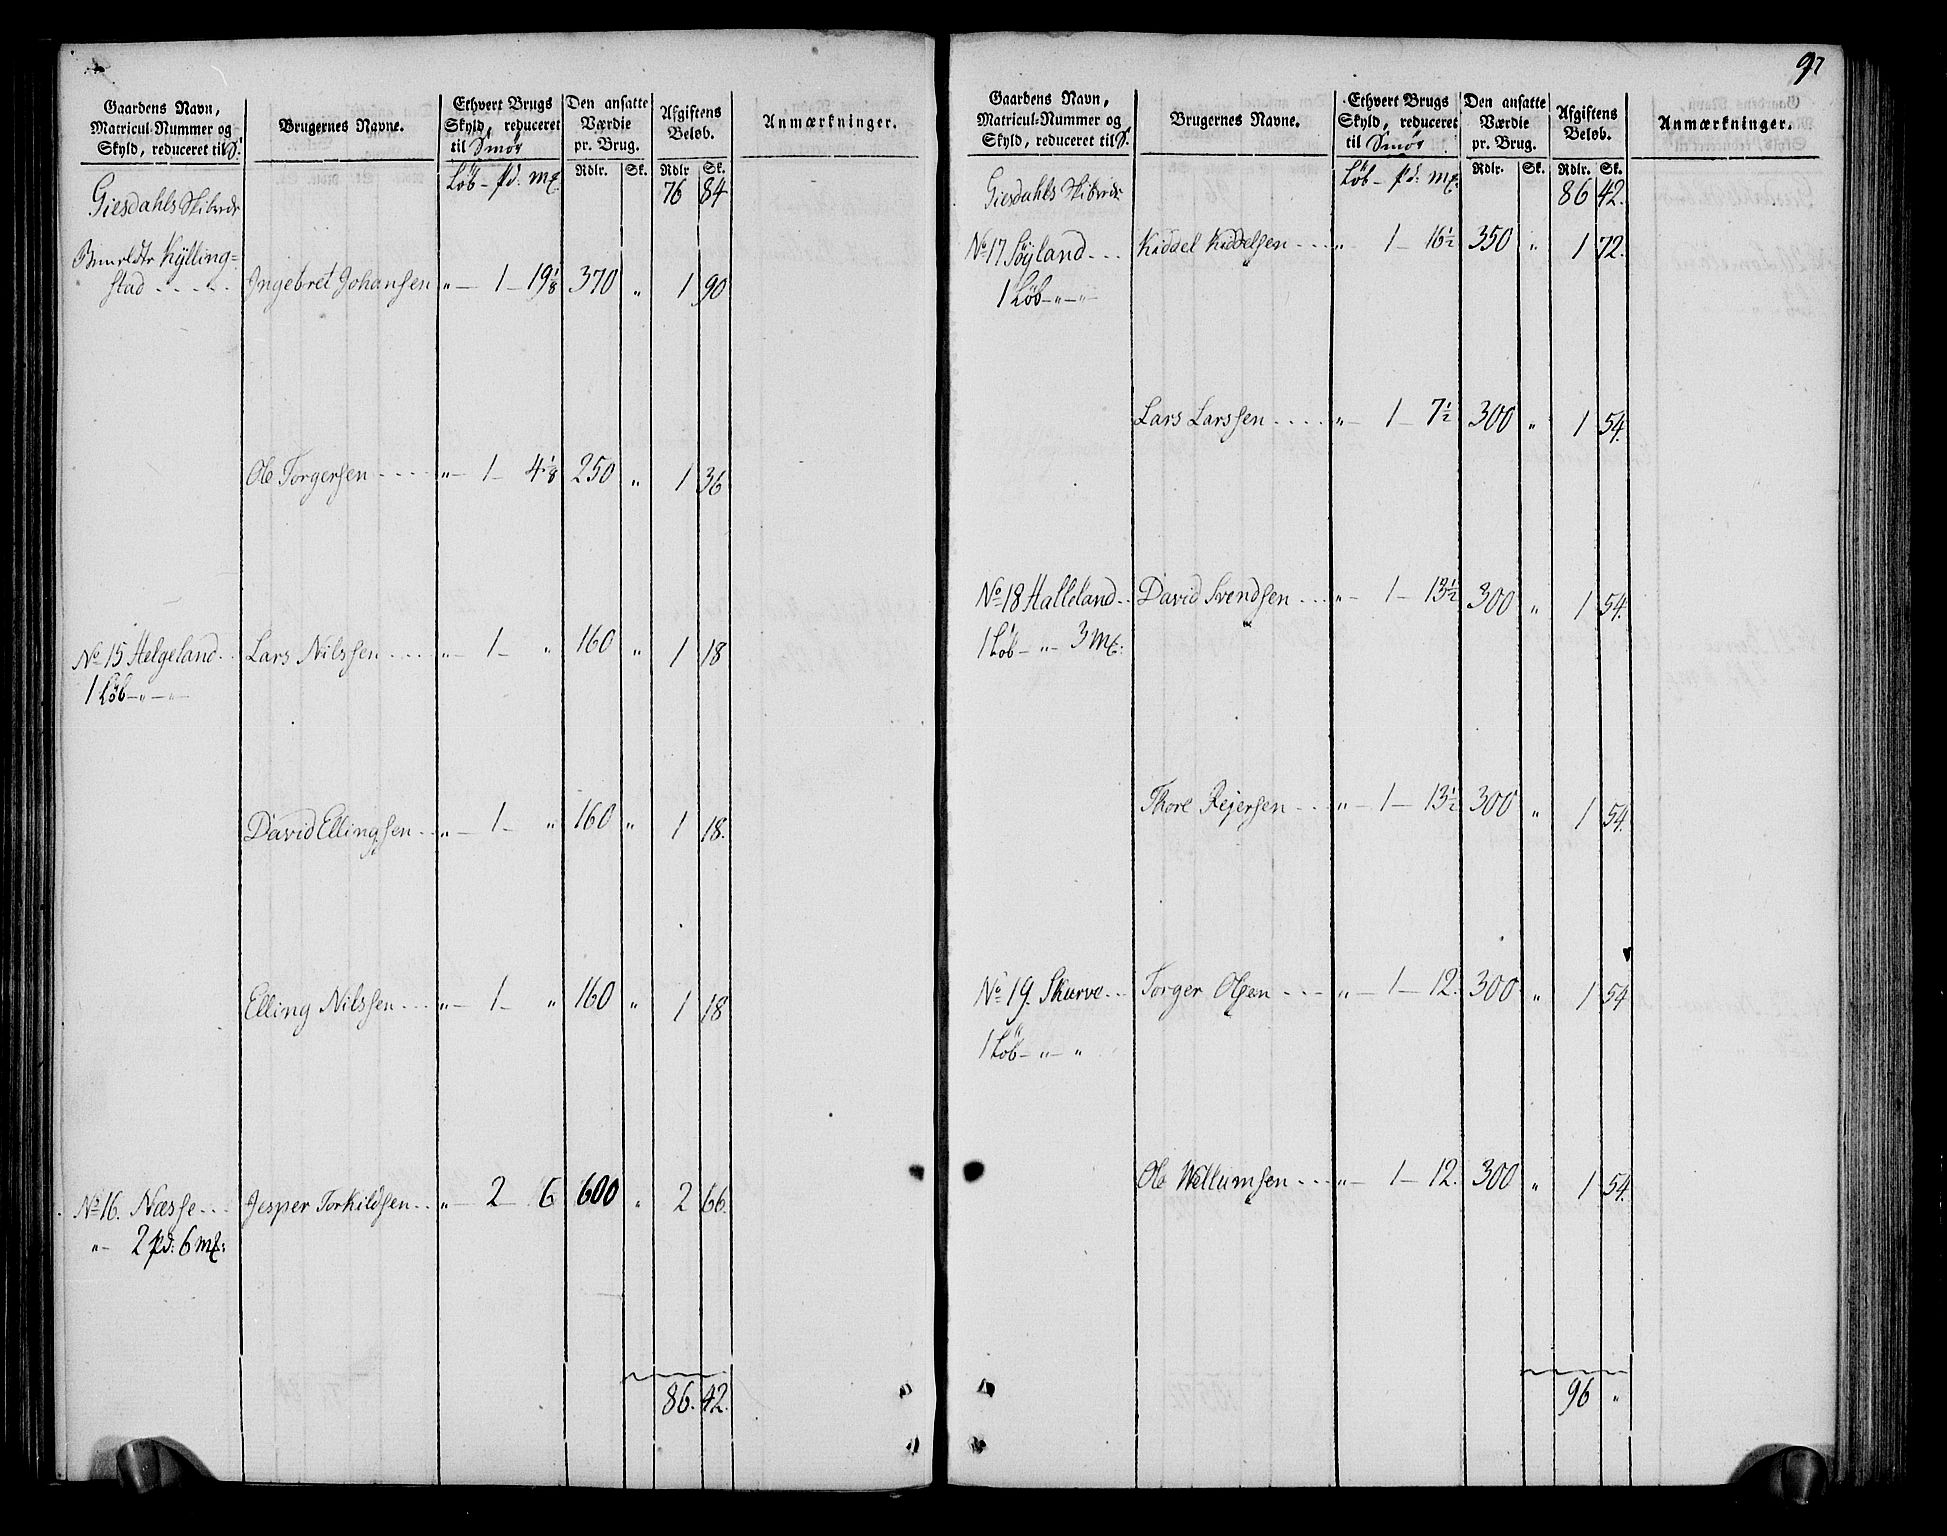 Gaardens Navn, Matricul-Nummer og Skyld, reduceret til S. | Brugernes Navne. | Ethvert Brugs Skyld, reduceret til Smör | Den ansatte Værdie pr. Brug. | Afgiftens Beløb. | Anmærkninger.
Löb - pd: mk: | Rdlr. | Sk. | Rdlr | Sk.
Giesdahls Skibrede 76 84
Kÿlling=
stad . . . . . Jngebret Johansen „ — 1 — 19 1/8 370 „ 1 90
Ole Torgersen . . . . „ — 1 — 4 1/8 250 „ 1 36
No 15 Helgeland . . Lars Nilssen . . . . „ — 1 — „ 160 „ 1 18
1 Löb — „ — „
David Ellingsen . . „ — 1 — „ 160 „ 1 18.
Elling Nilssen . . . „ — 1 — „ 160 „ 1 18
No 16. Næsse . . . Jesper Torkildsen . . „ — 2 — 6 600 „ 2 66.
„ — 2 pd: 6 mk:
86. 42.
97
Gaardens Navn, Matricul-Nummer og Skyld, reduceret til S. | Brugernes Navne. | Ethvert Brugs Skyld, reduceret til Smör | Den ansatte Værdie pr. Brug. | Afgiftens Beløb. | Anmærkninger.
Löb - pd: mk: | Rdlr. | Sk. | Rdlr. | Sk.
Giesdahls Skibrede 86 42.
No 17 Söÿland . . . Kiddel Kiddelsen . . . „ 1 — 16 1/2 350 „ 1 72.
1 Löb — „ — „
Lars Larssen . . . . „ — 1 — 7 1/2 300 „ 1 54.
No 18 Halleland . . David Svendsen . . . „ — 1 — 13 1/2 300 „ 1 54.
1 Löb — „ — 3 mk:
Thore Rejersen . . . „ — 1 — 13 1/2 300 „ 1 54.
No 19. Skurve . . . Torger Olsen . . . . „ — 1 — 12. 300 „ 1 54
1 Löb — „ — „
Ole Wellumsen . . . „ — 1 — 12. 300 „ 1 54.
96 „